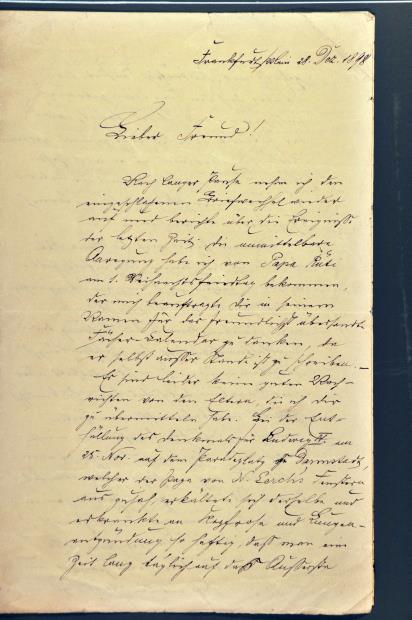 Frankfurt, Main 28. Dez. 1898
Lieber Freund!
Nach langer Pause nehm ich den
eingeschlafenen Briefwechsel wieder
auf und berichte über die Ereignisse
der letzten Zeit. Die unmittelbare
Anregung habe ich von Papa
am 1. Weihnachtsfeiertag bekommen,
der mich beauftragte Dir in seinem
Namen für den freundlichst übersandte
Fächer-Kalender zu danken, da
er selbst ausser Stande ist zu schreiben. —
Es sind leider keine guten Nach-
richten von den Eltern, die ich Dir
zu übermitteln habe. Bei der Ent-
hüllung des Denkmals für Ludwig IV. am
25. Nov. auf dem Paradeplatz zu Darmstadt,
welcher der Papa von Fenstern
aus zusah, erkältete sich derselbe und
erkrankte an Kopfrose und Lungen-
entzündung so heftig, dass man eine
Zeit lang täglich auf das Äusserste